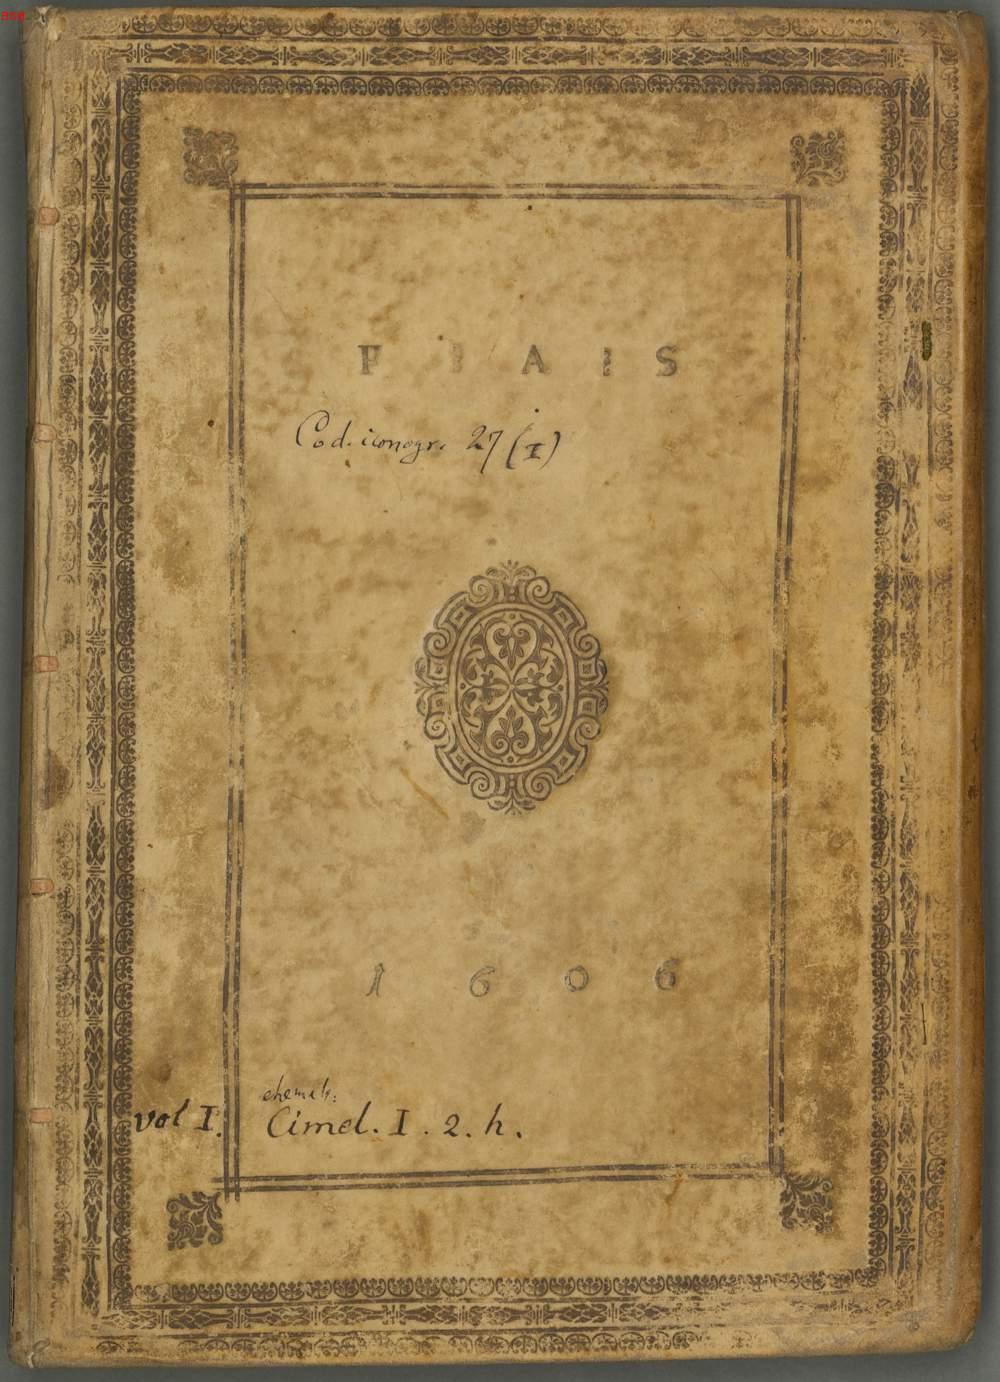 F I A I S
Cod. iconogr. 27 (I)
1 6 0 6
ehemals:
vol I. Cimel. I. 2. h.